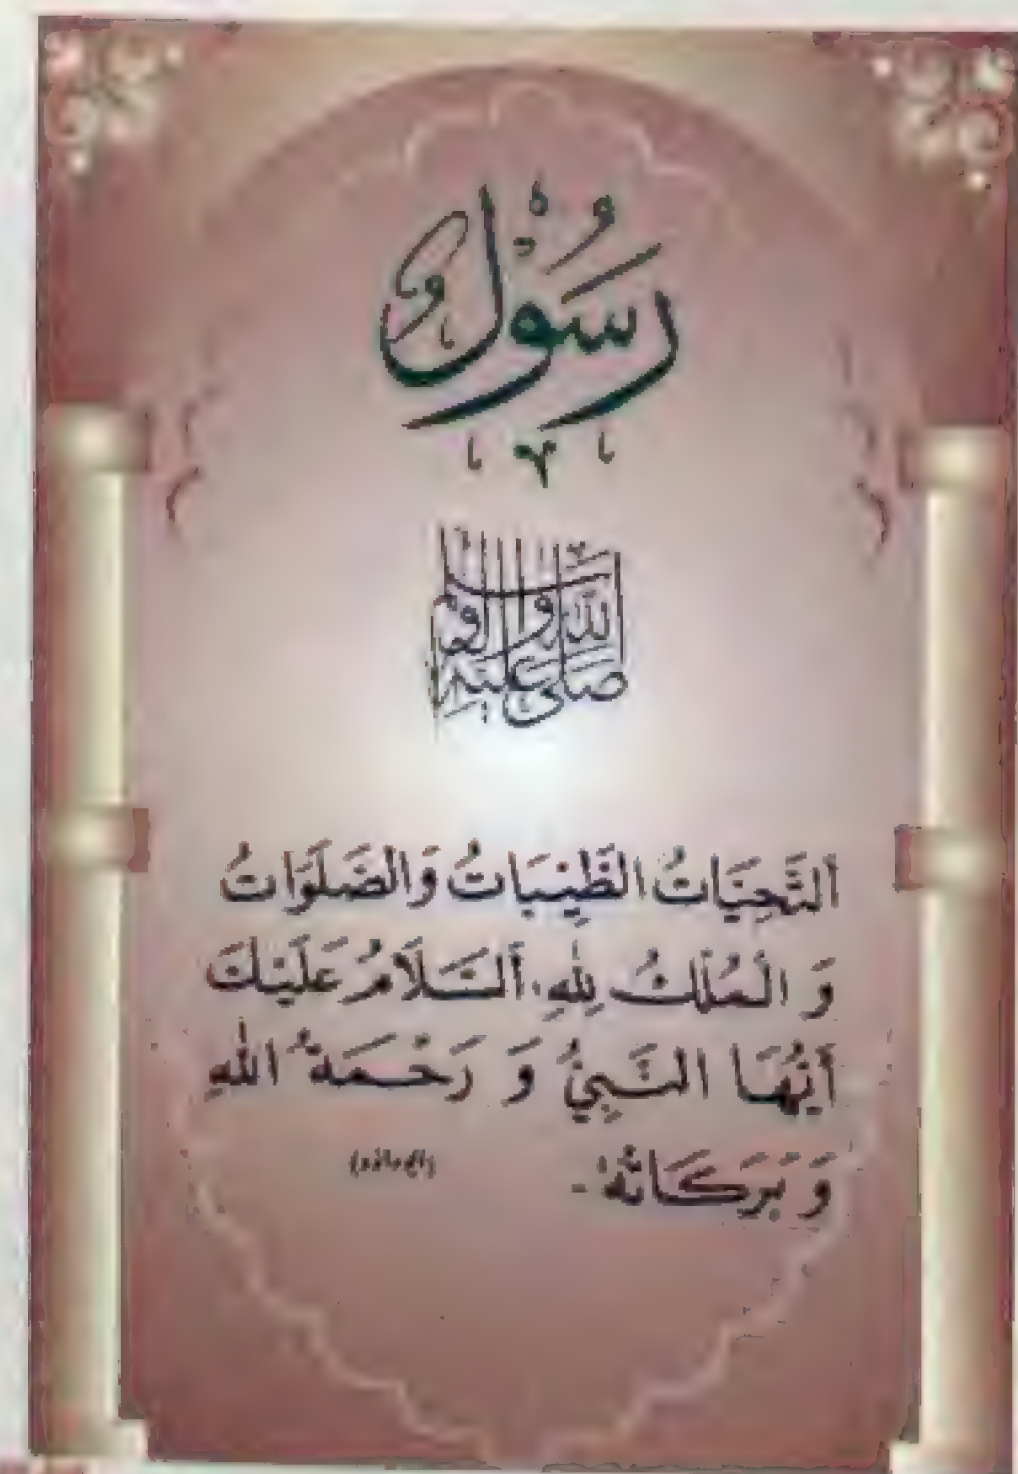 رَسُوْلٌ
صَلَّى اللّٰهُ عَلَيْهِ وَآلِهِ وَسَلَّم
اَلتَّحِيَّاتُ الطَّيِّبَاتُ وَالصَّلَوَاتُ
وَ الْمُلْكُ لِلّٰهِ، اَلسَّلَامُ عَلَيْكَ
اَيُّهَا النَّبِيُّ وَ رَحْمَةُ اللّٰهِ
وَ بَرَكَاتُهٗ۔ (ابو داؤد)